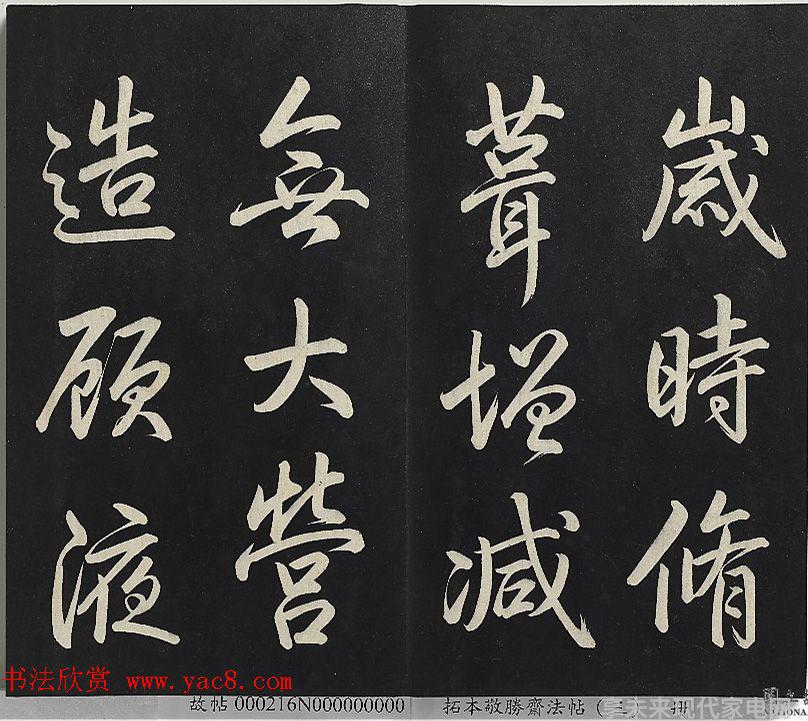 歲時脩
葺增減
無大營
造顧液
书法欣赏 www.yac8.com
故帖 000216N000000000
拓本敬勝齋法帖
享未来现代家电